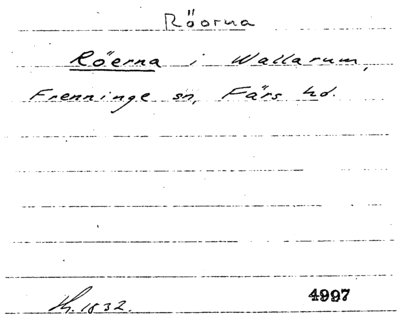 Röorna
Röerna i Wallarum,
Frenninge sn, Färs hd.
Th. 1832.
4997